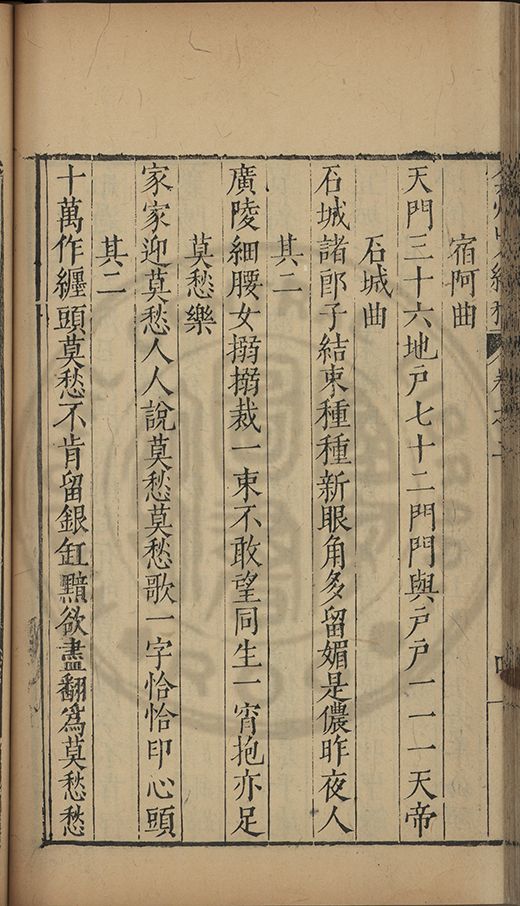 宿阿曲
天門三十六地戶七十二門門與戶戶一一一天帝
石城曲
石城諸郎子結束種種新眼角多留媚是儂昨夜人
其二
廣陵細腰女搦搦裁一束不敢望同生一宵抱亦足
莫愁樂
家家迎莫愁人人說莫愁莫愁歌一字恰恰印心頭
其二
十萬作纏頭莫愁不肯留銀缸黯欲盡翻為莫愁愁